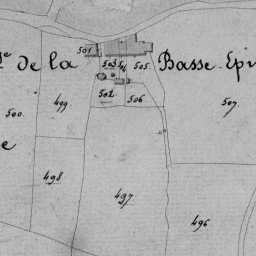 501
de la Basse Epi
503
505.
499
502
506
507
500.
e
498
497
496